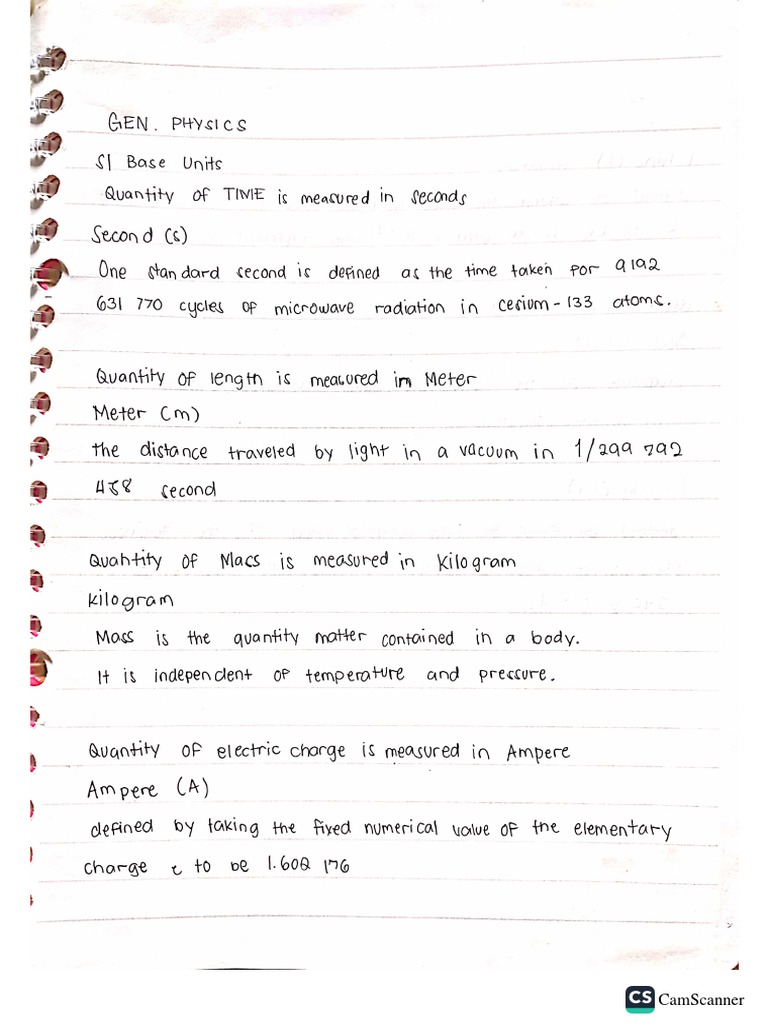 GEN. PHYSICS
SI Base Units
Quantity of TIME is measured in seconds
Second (s)
One standard second is defined as the time taken for 9192
631 770 cycles of microwave radiation in cesium-133 atoms.
Quantity of length is measured in Meter
Meter (m)
the distance traveled by light in a vacuum in 1/299 792
458 second
Quantity of Mass is measured in kilogram
kilogram
Mass is the quantity matter contained in a body.
It is independent of temperature and pressure.
Quantity of electric charge is measured in Ampere
Ampere (A)
defined by taking the fixed numerical value of the elementary
charge e to be 1.602 176
CS CamScanner